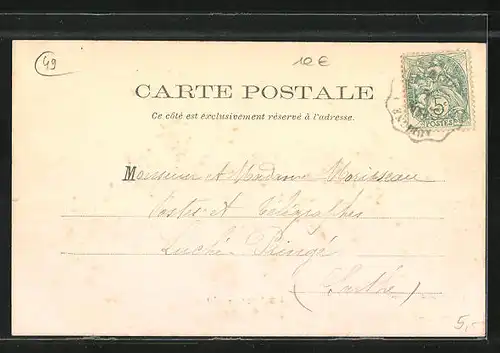 49
12€
CARTE POSTALE
Ce côté est exclusivement réservé à l'adresse.
5
POSTES
Monsieur et Madame Morisseau
Postes et Télégraphes
Luché-Pringé
(Sarthe)
5,-